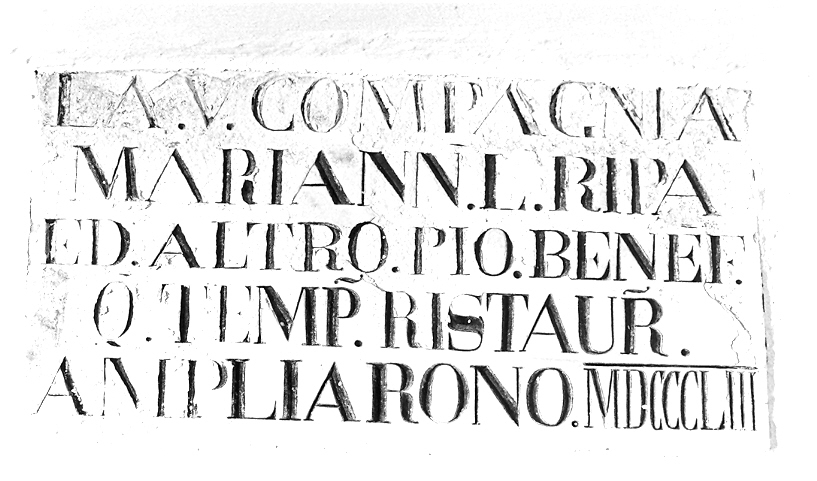 LA.V.COMPAGNIA
MARIANN.L.RIPA
ED.ALTRO.PIO.BENEF.
Q.TEMP̃.RISTAUR̃.
AMPLIARONO.MDCCCLIII